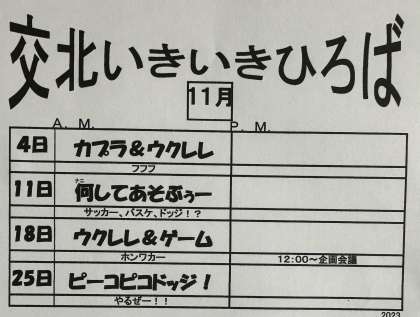 交北いきいきひろば
11月
A. M.
P. M.
4日 カプラ&ウクレレ
フフフ
11日 何してあそぶぅー
なに
サッカー、バスケ、ドッジ!?
18日 ウクレレ&ゲーム
ホンワカー 12:00～企画会議
25日 ピーコピコドッジ!
やるぜー!!
2023